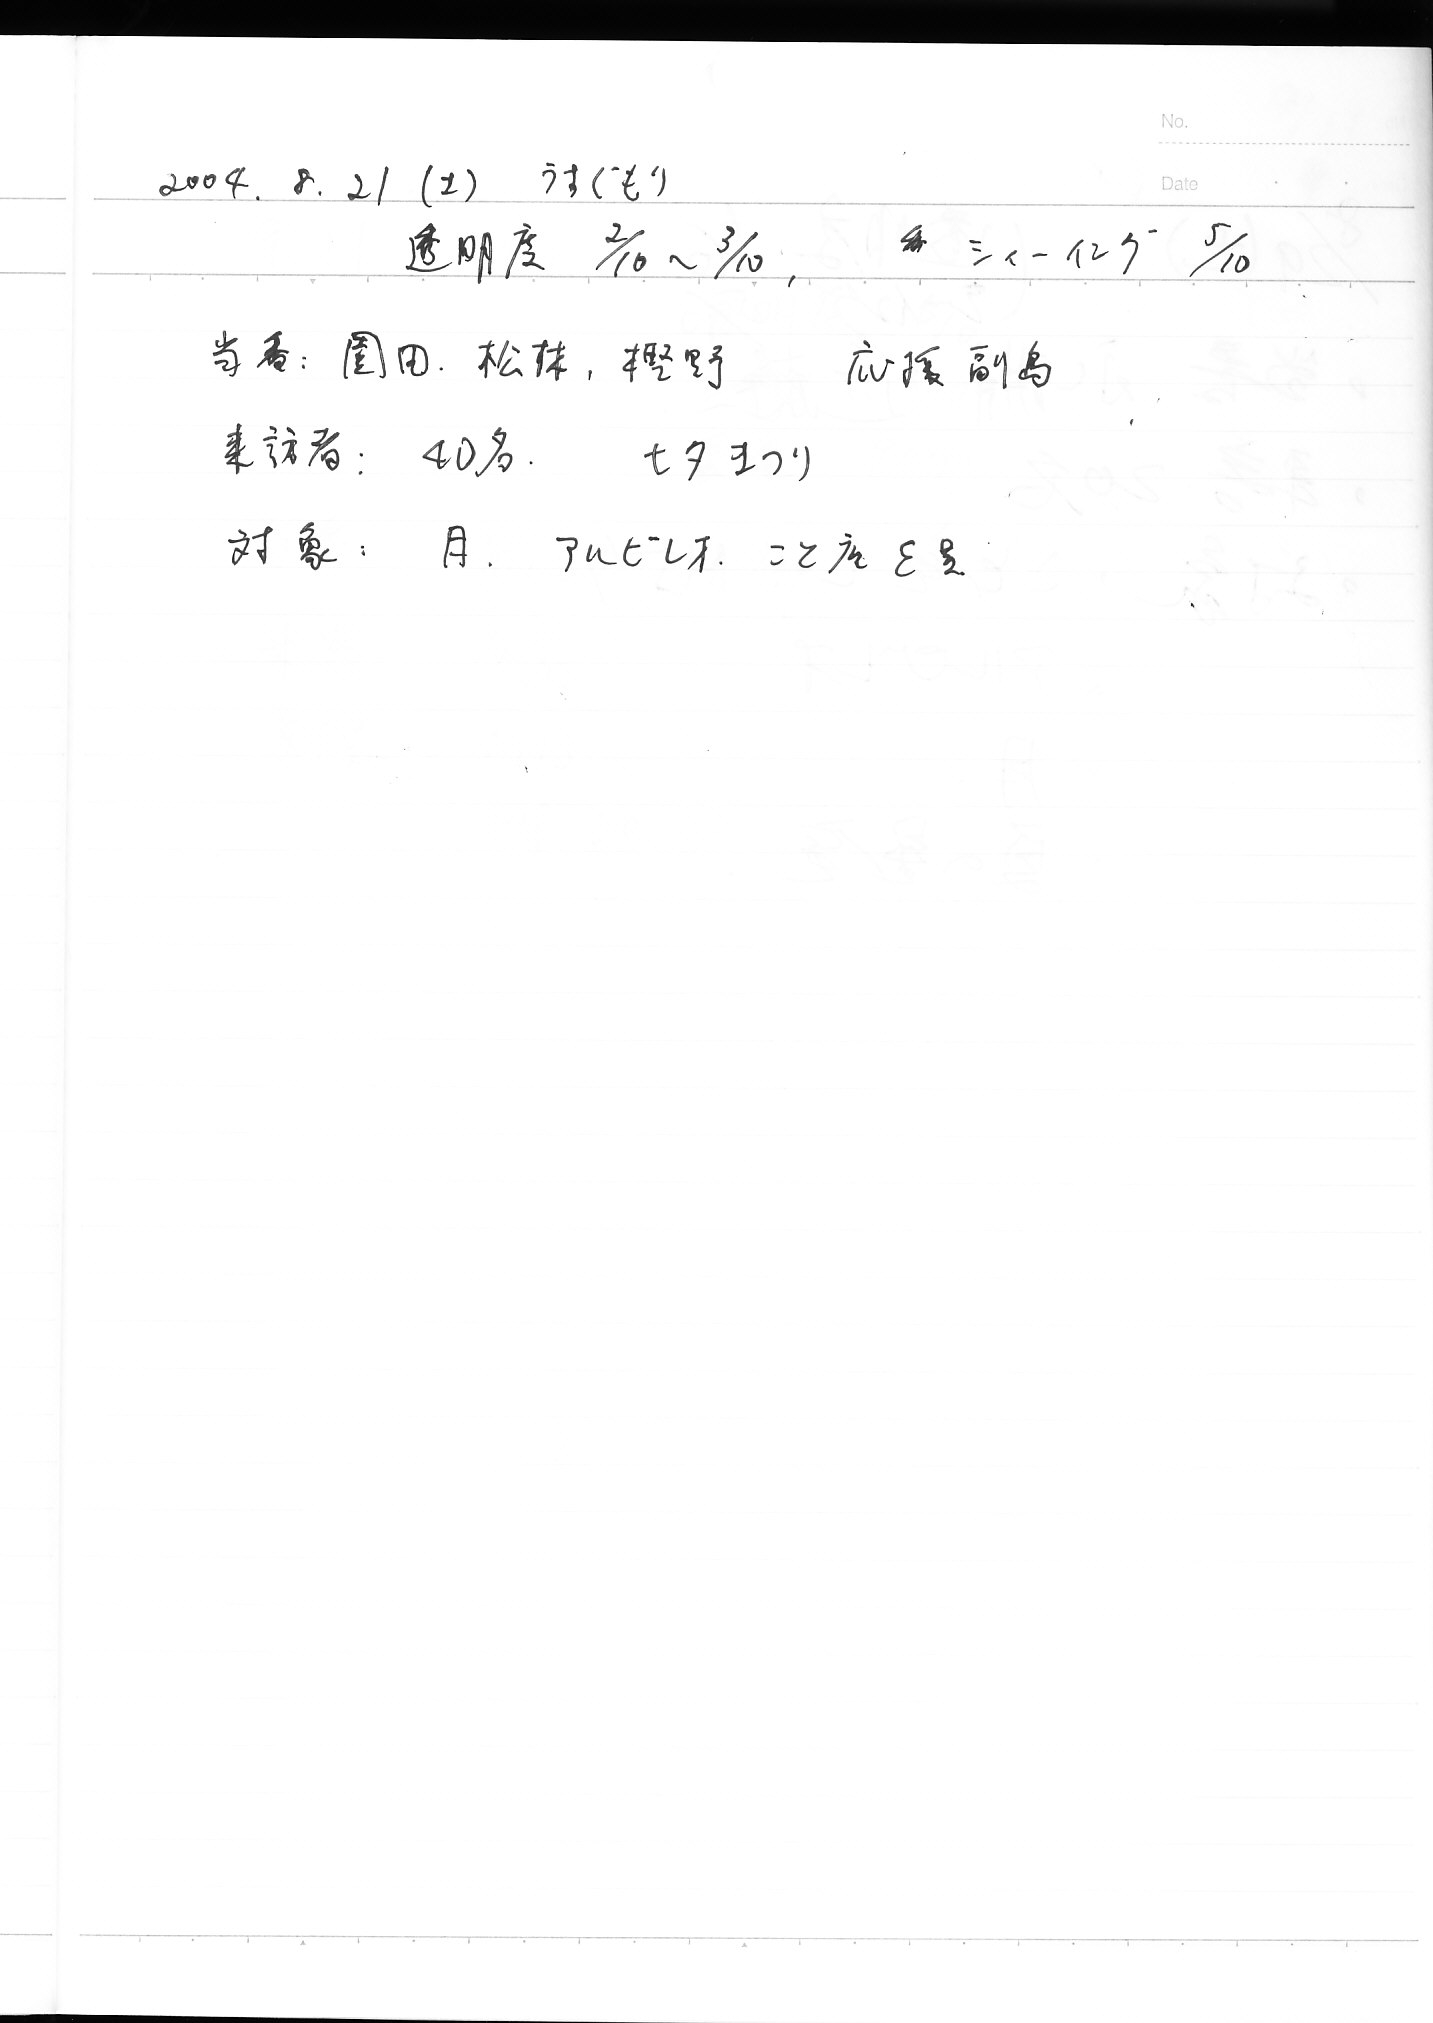 No.
Date
2004. 8. 21 (土) うすぐもり
透明度 2/10 ~ 3/10, シィーイング 5/10
当番: 園田. 松林, 樫野 応援 副島
来訪者: 40名. 七夕まつり
対象: 月. アルビレオ. こと座 ε星